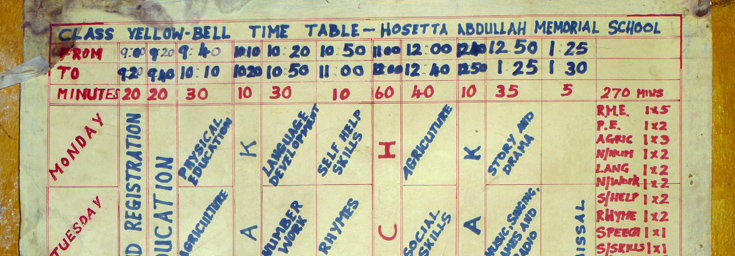 CLASS YELLOW-BELL TIME TABLE - HOSETTA ABDULLAH MEMORIAL SCHOOL
FROM 9:00 9:20 9:40 10:10 10:20 10:50 11:00 12:00 12:40 12:50 1:25
TO 9:20 9:40 10:10 10:20 10:50 11:00 12:00 12:40 12:50 1:25 1:30
MINUTES 20 20 30 10 30 10 60 40 10 35 5 270 MINS
MONDAY
PHYSICAL EDUCATION
K
LANGUAGE DEVELOPMENT
SELF HELP SKILLS
H
AGRICUTURE
K
STORY AND DRAMA
TUESDAY
D REGISTRATION
DUCATION
AGRICULTURE
A
NUMBER WORK
RHYMES
C
SOCIAL SKILLS
A
MUSIC, SINGING,
AMES AND
RADIO
ISSAL
R.M.E. 1x5
P.E. 1x2
AGRIC 1x3
N/NUM 1x2
LANG 1x2
N/WORK 1x2
S/HELP 1x2
RHYME 1x2
SPEECH 1x1
S/SKILLS 1x1